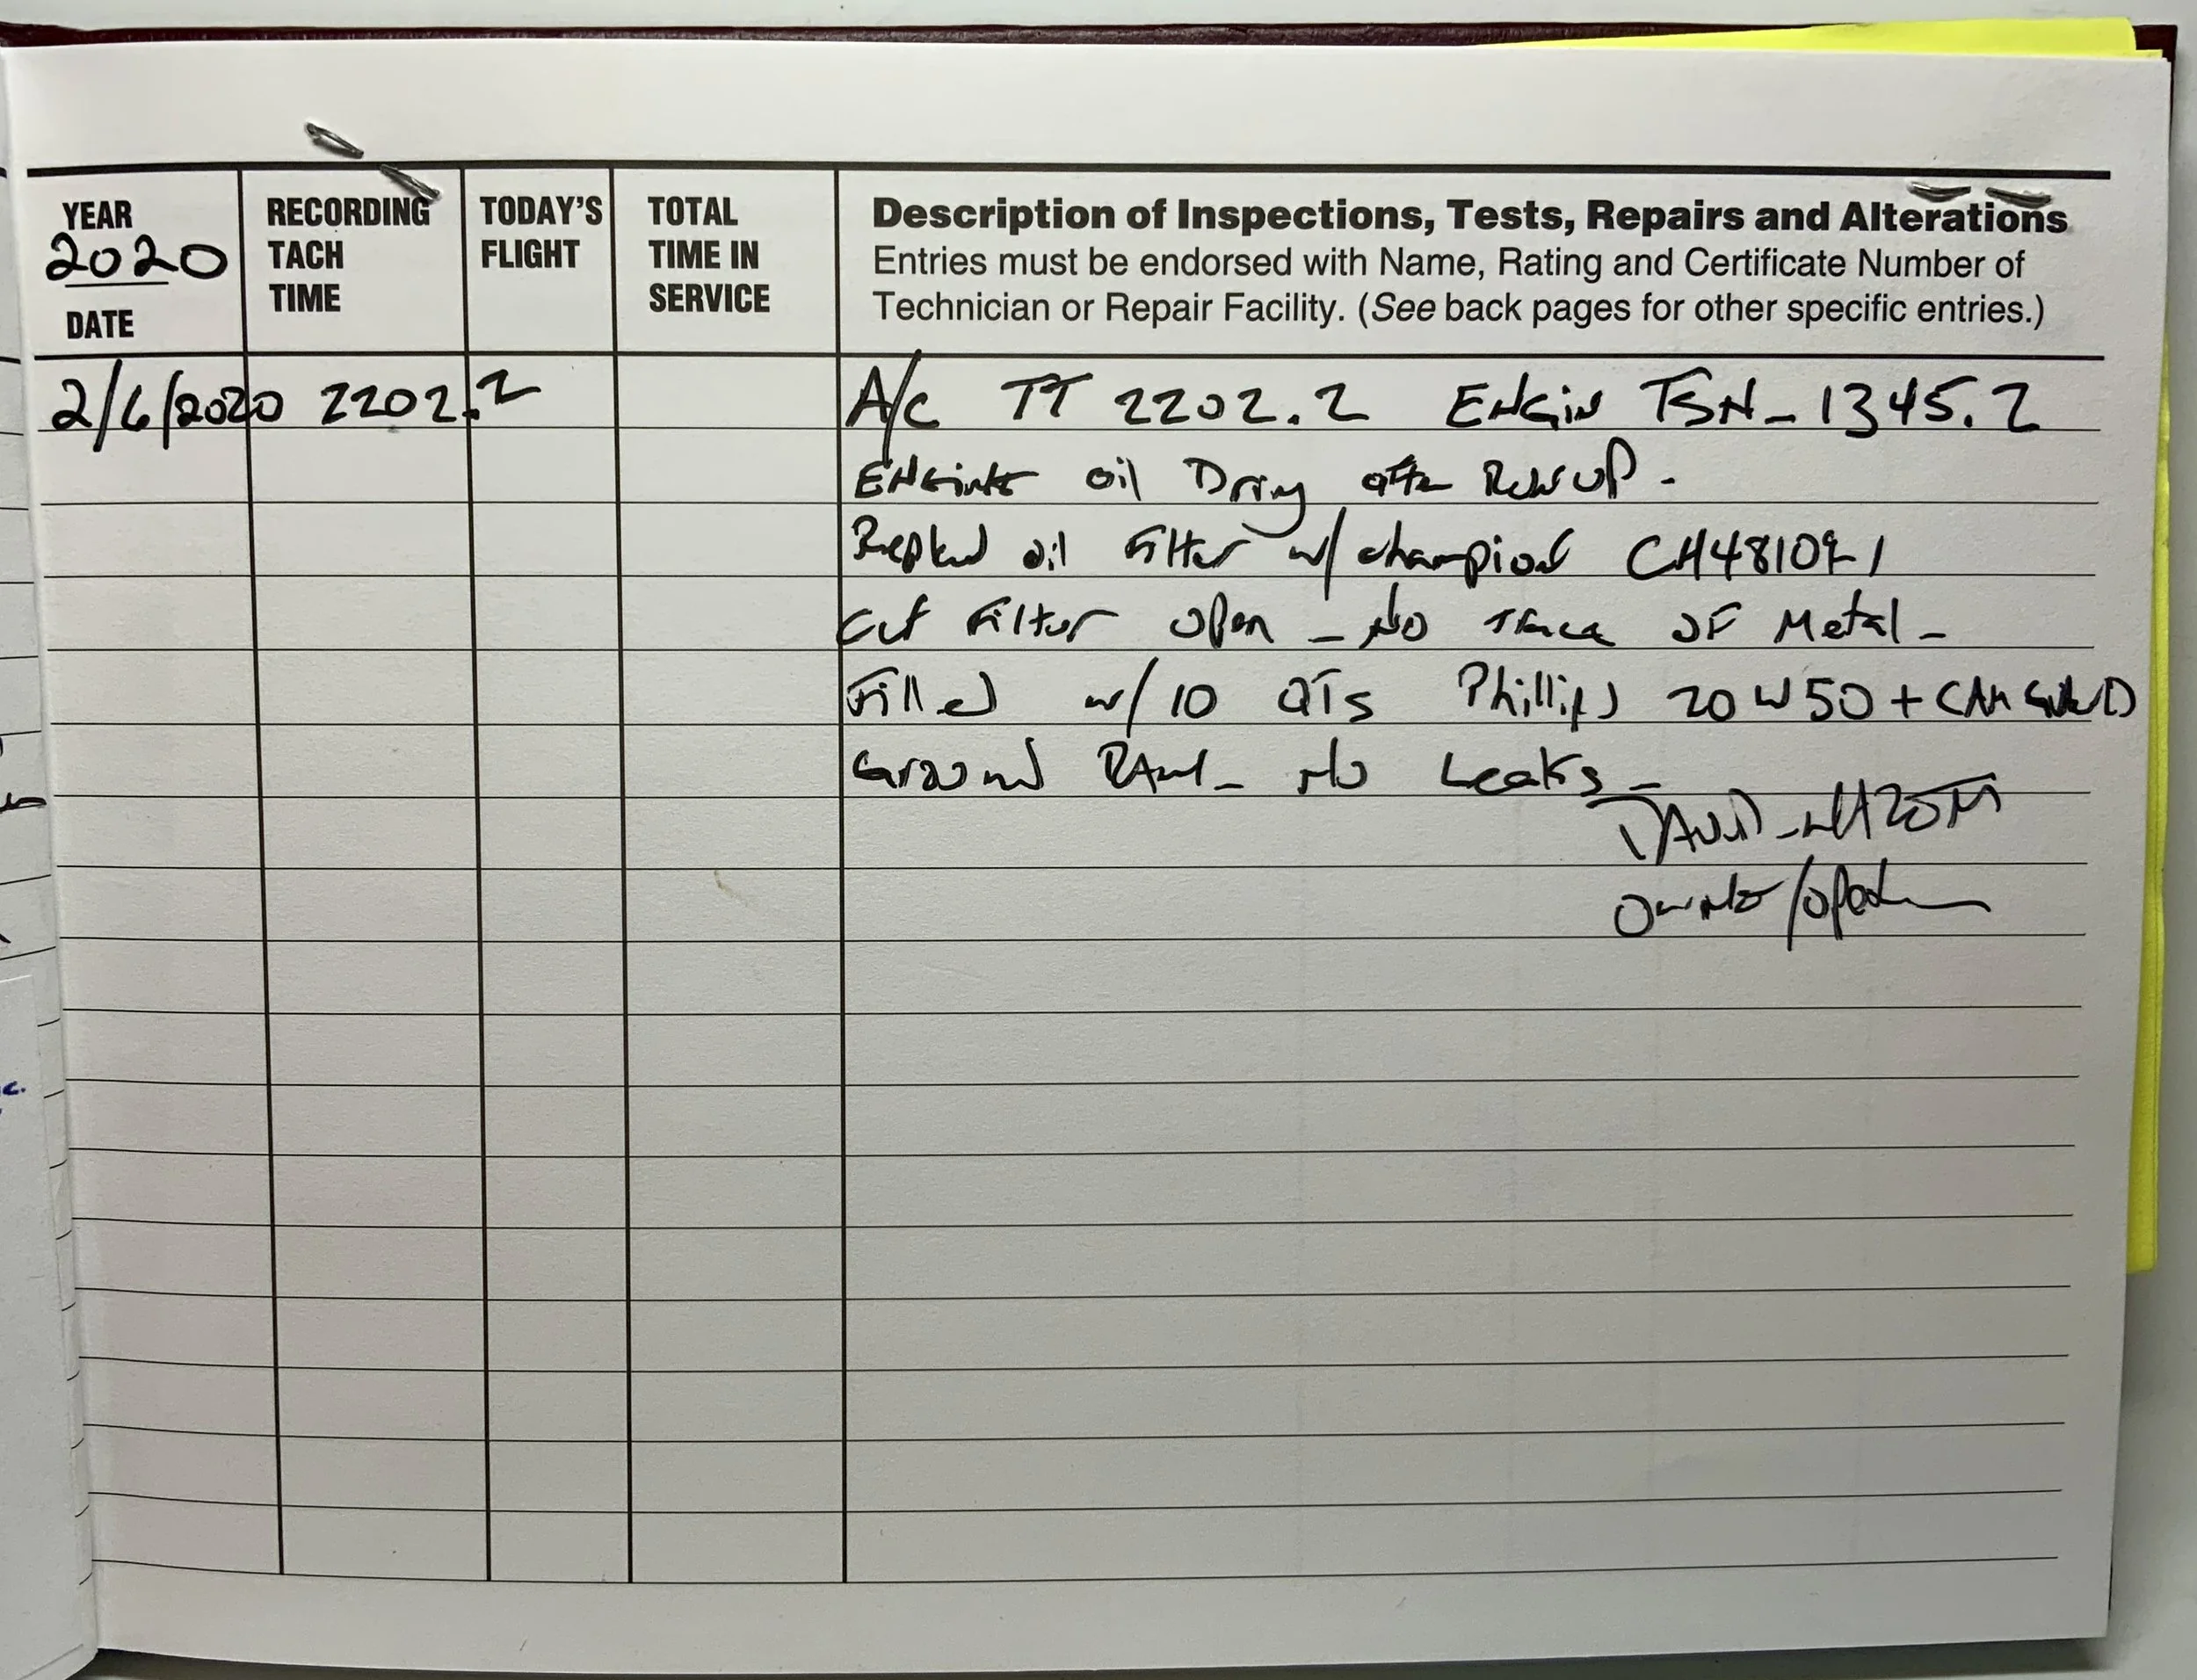 YEAR
2020
DATE
RECORDING
TACH
TIME
TODAY'S
FLIGHT
TOTAL
TIME IN
SERVICE
Description of Inspections, Tests, Repairs and Alterations
Entries must be endorsed with Name, Rating and Certificate Number of
Technician or Repair Facility. (See back pages for other specific entries.)
2/6/2020 2202.2 A/C TT 2202.2 Engin TSN - 1345.2
oil after Run up.
oil Filter w/ champion
cut Filter open - No trace of Metal -
Filled w/ 10 QTS Phillips 20W50 + CAM GUARD
Ground - No Leaks -
DAVID
Owner/
c.